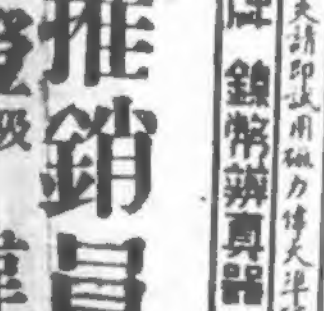 夫請即試用磁力偉大準
牌 鎳幣辨真器
推銷員
級